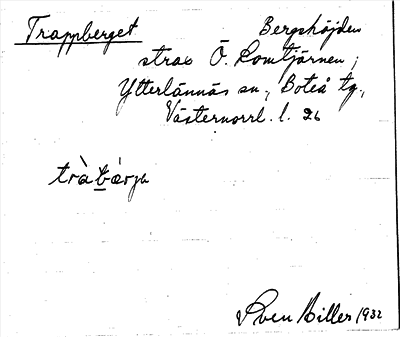 Trappberget Bergshöjden
strax Ö. Lomtjärnen;
Ytterlännäs sn., Boteå tg.,
Västernorrl. l. 26
tràbǽrjə
Sven Hiller 1932